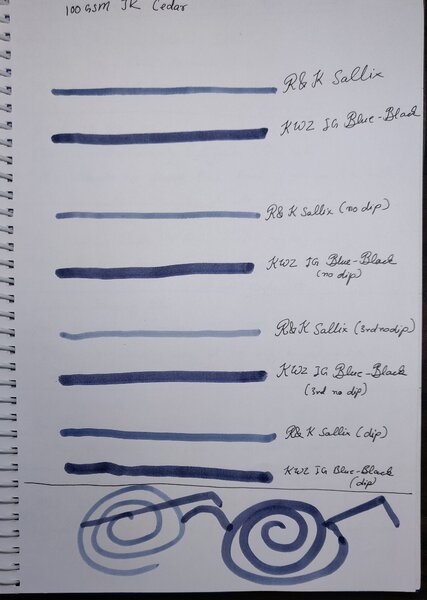 100GSM JK Cedar
R&K Sallix
KWZ IG Blue-Black
R&K Sallix (no dip)
KWZ IG Blue-Black
(no dip)
R&K Sallix (3rd no dip)
KWZ IG Blue-Black
(3rd no dip)
R&K Sallix (dip)
KWZ IG Blue-Black
(dip)